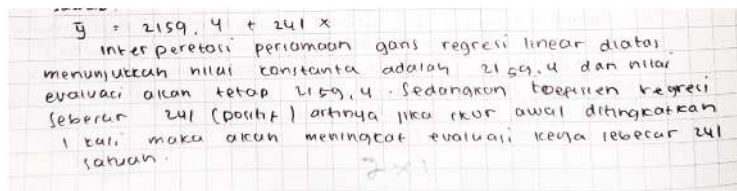 ȳ = 2159,4 + 241 x
Interperetasi persamaan garis regresi linear diatas
menunjukkan nilai konstanta adalah 2159,4 dan nilai
evaluasi akan tetap 2159,4. Sedangkan koefisien regresi
sebesar 241 (positif) artinya jika skor awal ditingkatkan
1 kali maka akan meningkat evaluasi kerja sebesar 241
satuan.